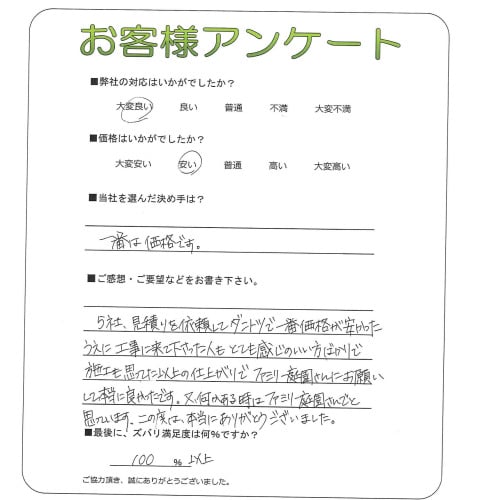 お客様アンケート
■弊社の対応はいかがでしたか？
大変良い 良い 普通 不満 大変不満
■価格はいかがでしたか？
大変安い 安い 普通 高い 大変高い
■当社を選んだ決め手は？
一番は価格です。
■ご感想・ご要望などをお書き下さい。
5社、見積りを依頼してダントツで一番価格が安かった
うえに工事に来て下さった人もとても感じのいい方ばかりで
施工も思ってた以上の仕上がりでファミリー庭園さんにお願い
して本当に良かったです。又、何かある時はファミリー庭園さんでと
思っています。この度は、本当にありがとうございました。
■最後に、ズバリ満足度は何％ですか？
100 ％ 以上
ご協力頂き、誠にありがとうございました。